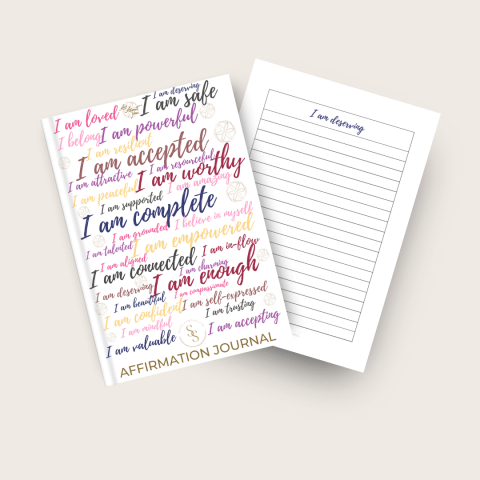 I am deserving
I am loved
I am safe
I belong
I am powerful
I am resilient
I am accepted
I am resourceful
I am attractive
I am worthy
I am peaceful
I am amazing
I am supported
I am complete
I am grounded
I believe in myself
I am talented
I am empowered
I am aligned
I am in-flow
I am connected
I am charming
I am enough
I am deserving
I am compassionate
I am beautiful
I am self-expressed
I am confident
I am trusting
I am mindful
I am accepting
I am valuable
AFFIRMATION JOURNAL
I am deserving.